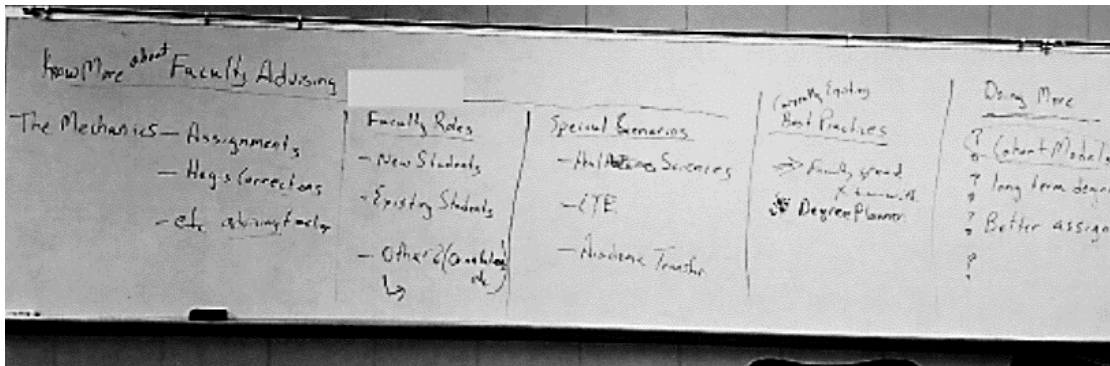 Know More about Faculty Advising
- The Mechanics - Assignments
- Corrections
- etc.
Faculty Roles
- New Students
- Existing Students
- Other?
Special Scenarios
- Sciences
- CTE
- Academic Transfer
Currently Existing
Best Practices
Faculty
Degree Planner
Doing More
? Cohort Models
? long term
? Better assign
?